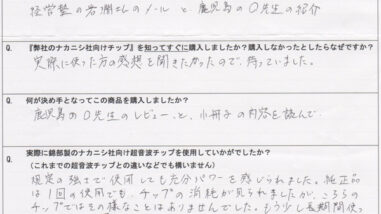 経営塾の岩渕さんのメールと鹿児島のO先生の紹介
Q. 『弊社のナカニシ社向けチップ』を知ってすぐに購入しましたか？購入しなかったとしたらなぜですか？
実際に使った方の感想を聞きたかったので、待っていました。
Q. 何が決め手となってこの商品を購入しましたか？
鹿児島のO先生のレビューと、小冊子の内容を読んで
Q. 実際に錦部製のナカニシ社向け超音波チップを使用していかがでしたか？
（これまでの超音波チップとの違いなどでも構いません）
規定の強さで使用しても充分パワーを感じられました。純正品
は1回の使用でも、チップの消耗が見られましたが、こちらの
チップではその様なことはありませんでした。もう少し長期間使っ